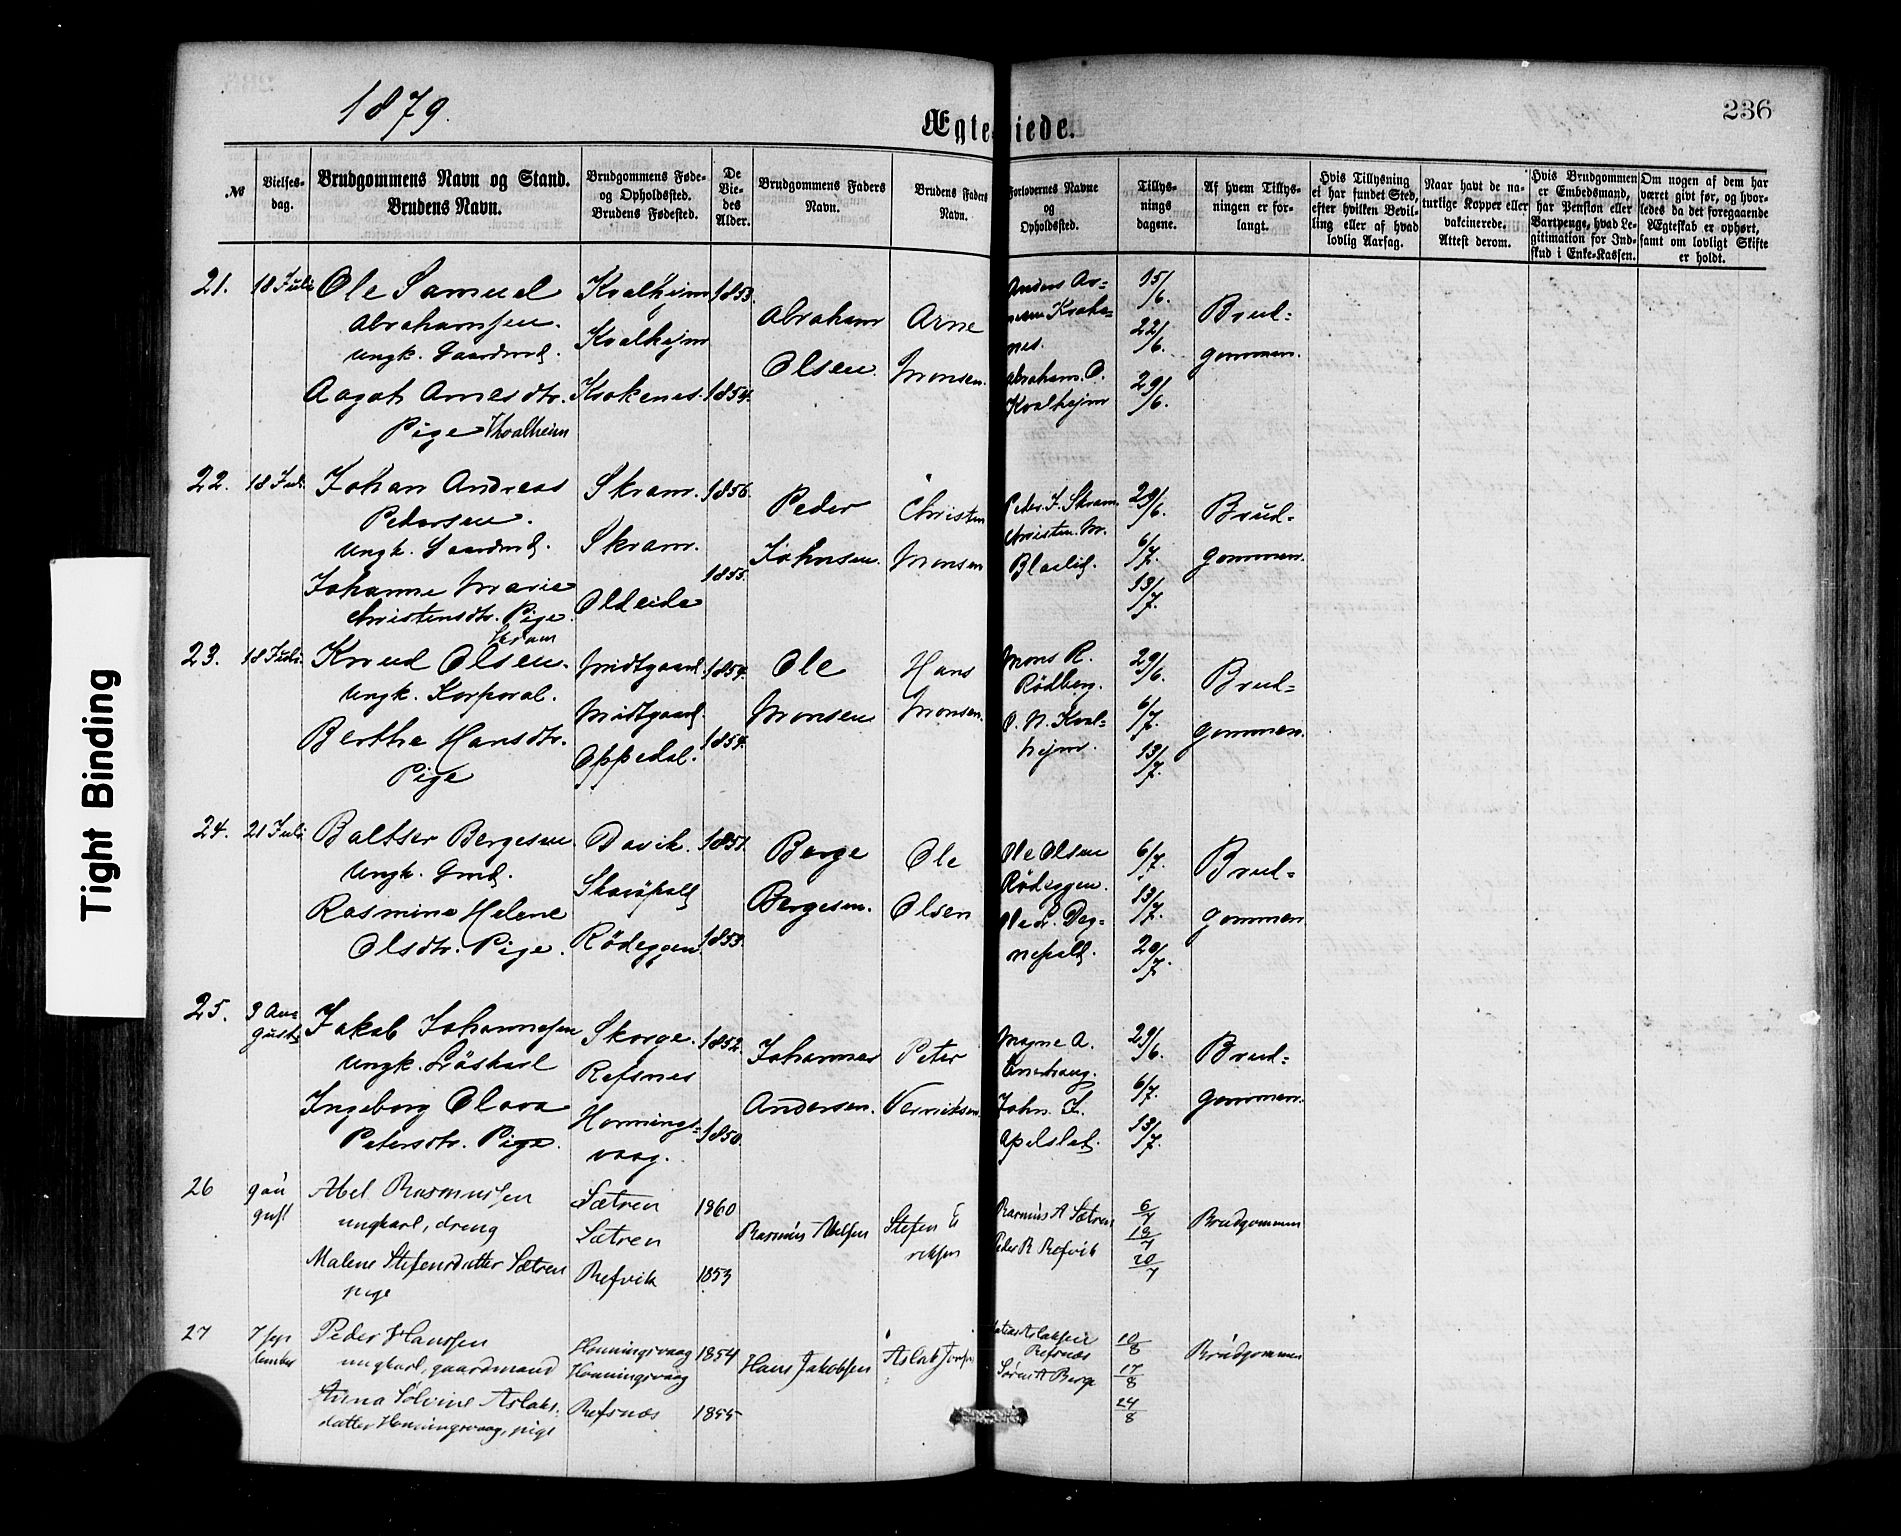 1879.
Ægteviede.
236
Tight Binding
№
Vielses-
dag.
Brudgommens Navn og Stand.
Brudens Navn.
Brudgommens Føde-
og Opholdssted.
Brudens Fødested.
De
Vie-
des
Alder.
Brudgommens Faders
Navn.
Brudens Faders
Navn.
Forlovernes Navne
og
Opholdssted.
Tillys-
nings
dagene.
Af hvem Tillys-
ningen er for-
langt.
Hvis Tillysning
ei har fundet Sted,
efter hvilken Bevil-
ling eller af hvad
lovlig Aarsag.
Naar havt de na-
turlige Kopper eller
vakcinerede.
Attest derom.
Hvis Brudgommen
er Embedsmand,
har Pension eller
Vartpenge, hvad Le-
gitimation for Ind-
skud i Enke-Kassen.
Om nogen af dem har
været givt før, og hvor-
ledes da det foregaaende
Ægteskab er ophørt,
samt om lovligt Skifte
er holdt.
21.
18 Juli
Ole Samuel
Abrahamsen.
Ungk. Gaardmd.
Aagot Arnesdtr.
Pige Kvalheim
Kvalhejm
Kvalhejm
Krokenes.
1853.
1854.
Abraham
Olsen.
Arne
Monsen.
Anders Ar=
nes.
Abraham. O.
Kvalhejm
15/6.
22/6.
29/6.
Brud=
gommen.
22.
18 Juli
Johan Andreas
Pedersen.
Ungk. Gaardmd.
Johanne Marie
Christensdtr. Pige.
Skram
Skram.
Skram.
Oldeide
1856.
1855.
Peder
Johnsen.
Christen
Monsen
Peder J. Skram
Christen M.
Blaalid.
29/6.
6/7.
13/7.
Brud=
gommen.
23.
18 Juli
Knud Olsen.
Ungk. Korporal.
Berthe Hansdtr.
Pige
Midtgaard
Midtgaard.
Oppedal.
1854.
1854.
Ole
Monsen
Hans
Monsen.
Mons R.
Rødberg.
O. N. Kval=
hejm.
29/6.
6/7.
13/7.
Brud=
gommen.
24.
21 Juli
Baltser Bergesen
Ungk. Gmd.
Rasmine Helene
Olsdtr. Pige.
Davik.
Rødeggen.
1851.
1853.
Berge
Bergesen.
Ole
Olsen
Ole Olsen
Rødeggen.
6/7.
13/7.
20/7.
Brud=
gommen
25.
3 Au=
gust
Jakob Johannesen
Ungk. Løskarl
Ingeborg Olava
Petersdtr. Pige.
Skorge.
Refsnes
Hornings=
vaag.
1852.
1850.
Johannes
Andersen.
Peter
Magne A.
John. J.
29/6.
6/7.
13/7.
Brud=
gommen.
26
9 au
gust
Abel Rasmussen
ungkarl, dreng
Malene Stefensdatter Sætren
pige
Sætren
Sætren
Refvik
1860
1853
Rasmus Abelsen
Stefen E
riksen
Rasmus A Sætren
Peder R Refvik
6/7
13/7
20/7
Brudgommen
27
7 sep
tember
Peder Hanssen
ungkarl, gaardmand
Anna Soline Aslaks-
datter Honningsvaag, pige
Honningsvaag
Honningsvaag
Refsnæs
1854
1855
Hans Jakobsen
Refsnæs
Søren A Berge
10/8
17/8
24/8
Brudgommen